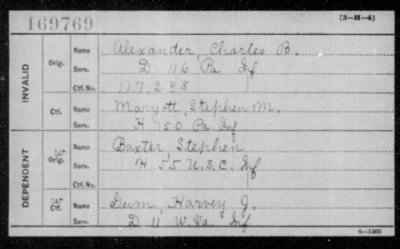 169769
(3-H-4)
INVALID
Orig.
Name Alexander, Charles B.
Serv. D 116 Pa Inf
Ctf. No. 117,288
Ctf.
Name Maryott, Stephen M.
Serv. H 150 Pa Inf
DEPENDENT
Orig.
Name Baxter, Stephen
Serv. H 55 U.S.C. Inf
Ctf. No.
Ctf.
Name Gum, Harvey J.
Serv. D 11 W.Va. Inf